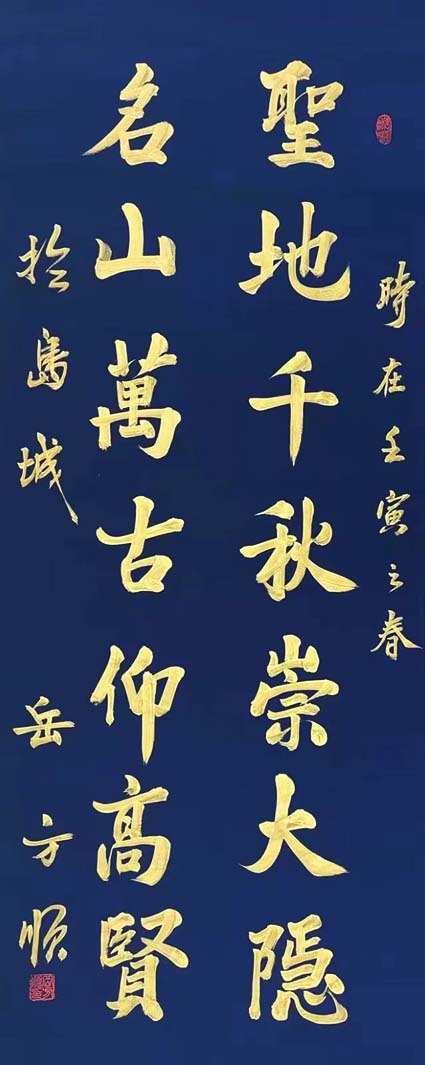 時在壬寅之春
聖地千秋崇大隱
名山萬古仰高賢
於島城 岳方順